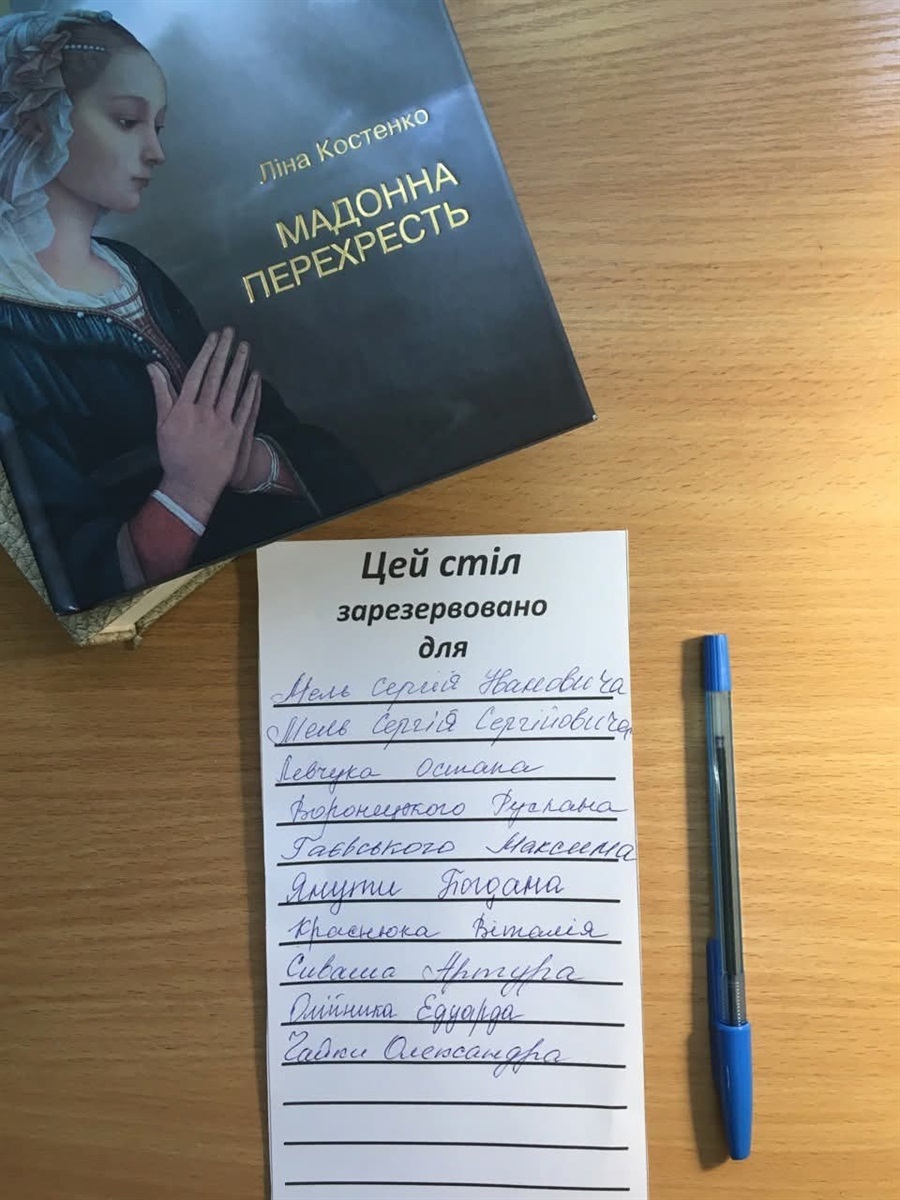 Ліна Костенко
МАДОННА
ПЕРЕХРЕСТЬ
Цей стіл
зарезервовано
для
Мель Сергій Івановича
Мель Сергій Сергійовича
Левчука Остапа
Воронецького Руслана
Гаєвського Максима
Янути Богдана
Краснюка Віталія
Сиваша Артура
Олійника Едуарда
Чайки Олександра